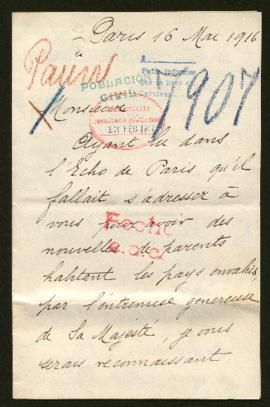 Paris 16 Mai 1916
POBLACION
CIVIL
1907
Monsieur
13 FEB
Ayant lu dans
l'Echo de Paris qu'il
fallait s'adresser à
vous pour avoir des
nouvelles de parents
habitant les pays envahis,
par l'entremise généreuse
de Sa Majesté, je vous
serais reconnaissant